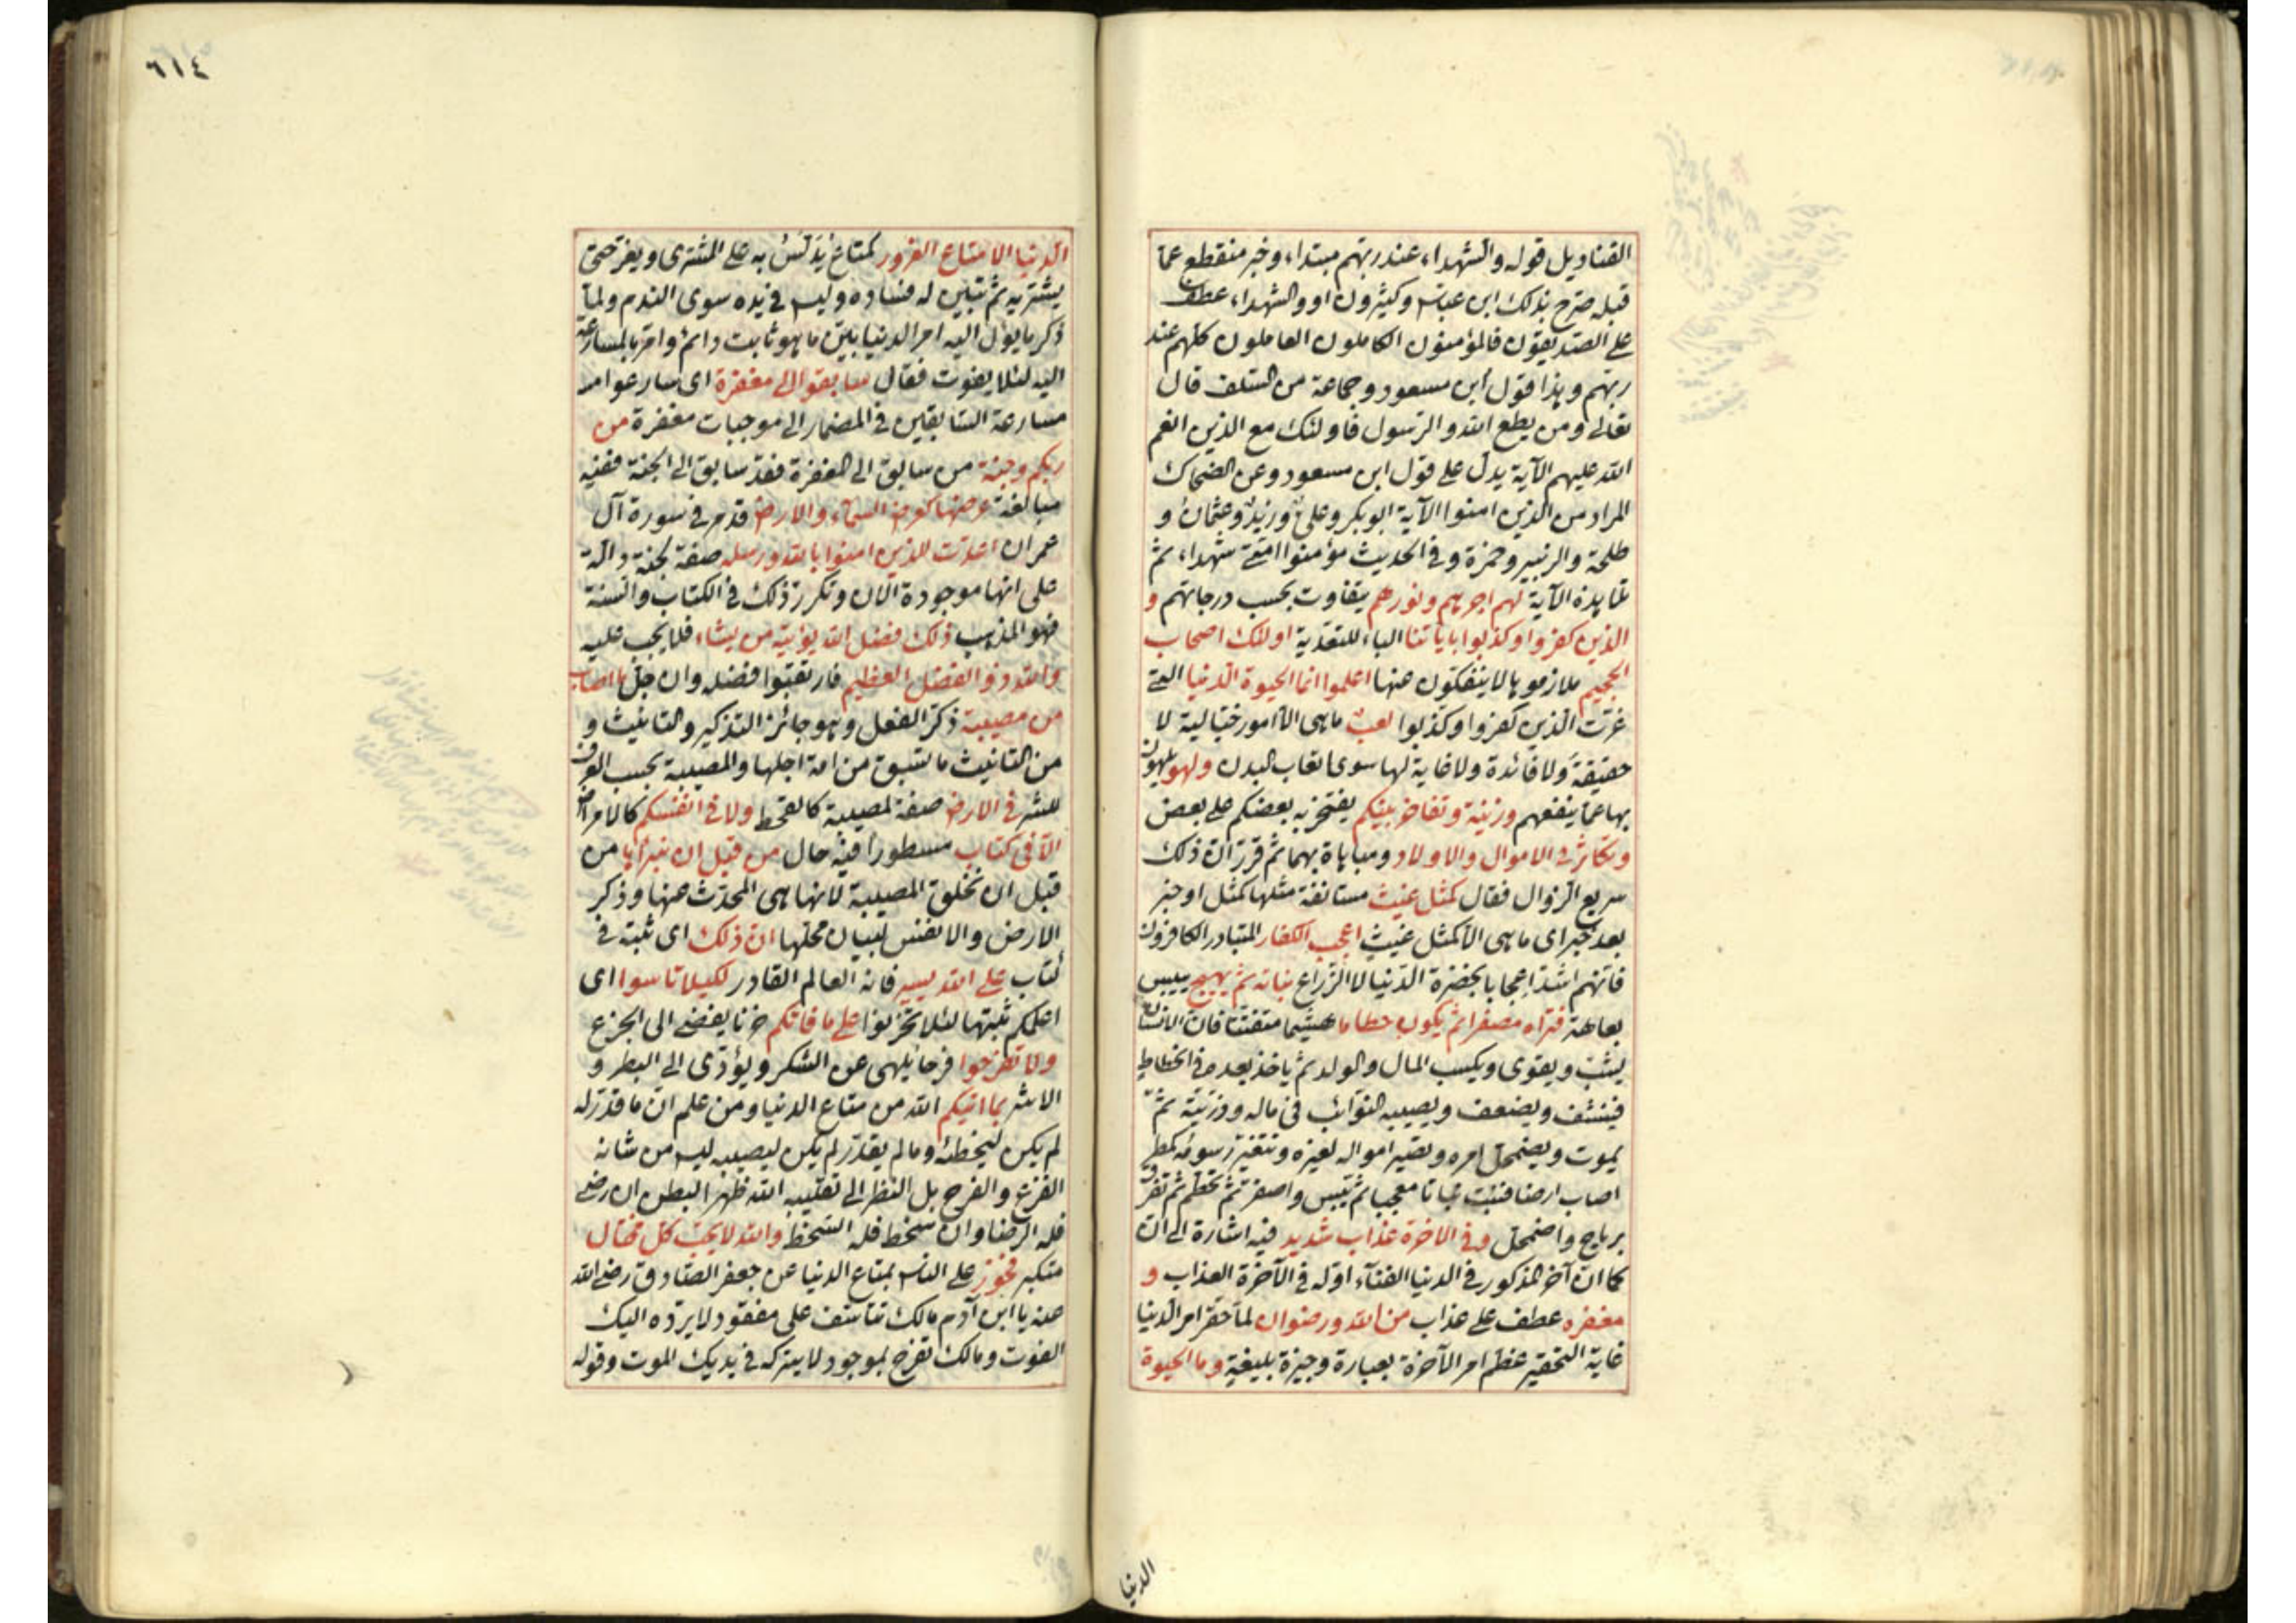 القناديل قوله والشهداء عند ربهم مبتداء وخبر منقطع عما
قبله صرح بذلك ابن عباس وكثيرون او والشهداء عطف
على الصديقون فالمؤمنون الكاملون العاملون كلهم عند
ربهم وهذا قول ابن مسعود وجماعة من السلف قال
تعالى ومن يطع الله والرسول فاولئك مع الذين انعم
الله عليهم الآية يدل على قول ابن مسعود وعن الضحاك
المراد من الذين امنوا الآية ابو بكر وعلي وزيد وعثمان و
طلحة والزبير وحمزة وفي الحديث مؤمنوا امتي شهداء ثم
تلا هذه الآية لهم اجرهم ونورهم يتفاوت بحسب درجاتهم و
الذين كفروا وكذبوا باياتنا الباء للتعدية اولئك اصحاب
الجحيم ملازموها لا ينفكون عنها اعلموا انما الحيوة الدنيا التي
غرت الذين كفروا وكذبوا لعب ما هي الا امور خيالية لا
حقيقة ولا فائدة ولا غاية لها سوى اتعاب البدن ولهو يلهون
بها عما ينفعهم وزينة وتفاخر بينكم يفتخر به بعضكم على بعض
وتكاثر في الاموال والاولاد ومباهاة بهما ثم قرر ان ذلك
سريع الزوال فقال كمثل غيث مستانفة مثلها كمثل او خبر
بعد خبر اى ما هي الا كمثل غيث اعجب الكفار المتبادر الكافرون
فانهم اشد اعجابا بخضرة الدنيا لا الزراع نباته ثم يهيج ييبس
بعاهة فتراه مصفرا ثم يكون حطاما هشيما متفتتا فان الانسان
يشب ويقوى ويكسب المال والولد ثم ياخذ بعد في انحطاط
فينشف ويضعف ويصيبه النوائب في ماله وذريته ثم
يموت ويضمحل امره وتصير امواله لغيره وتتغير رسومه كمطر
اصاب ارضا فنبت نباتا معجبا ثم يبس واصفر ثم تحطم ثم تفرق
برياح واضمحل وفي الاخرة عذاب شديد فيه اشارة الى ان
كما ان آخر المذكور في الدنيا الفناء اوله في الآخرة العذاب و
مغفرة عطف على عذاب من الله ورضوان لما حقر امر الدنيا
غاية التحقير عظم امر الآخرة بعبارة وجيزة بليغة وما الحيوة
الدنيا
٦١٤
الدنيا الا متاع الغرور كمتاع يدلس به على المشترى ويغر حتى
يشتريه ثم تبين له فساده وليس في يده سوى الندم ولما
ذكر ما يؤل اليه امر الدنيا بين ما هو ثابت دائم وامر بالمسارعة
اليه لئلا يفوت فقال سابقوا الى مغفرة اى سارعوا
مسارعة السابقين في المضمار الى موجبات مغفرة من
ربكم وجنة من سابق الى المغفرة فقد سابق الى الجنة ففيه
مبالغة عرضها كعرض السماء والارض قد مر في سورة آل
عمران اعدت للذين امنوا بالله ورسله صفة لجنة دالة
على انها موجودة الان وتكرر ذلك في الكتاب والسنة
فهو المذهب ذلك فضل الله يؤتيه من يشاء فلا يجب عليه
والله ذو الفضل العظيم فارتقبوا فضله وان جل ما اصاب
من مصيبة ذكر الفعل وهو جائز التذكير والتانيث و
من التانيث ما تسبق من امة اجلها والمصيبة بحسب العرف
للشر في الارض صفة لمصيبة كالقحط ولا في انفسكم كالامراض
الا في كتاب مسطورا فيه حال من قبل ان نبراها من
قبل ان نخلق المصيبة لانها هي المحدث عنها وذكر
الارض والانفس لبيان محلها ان ذلك اى ثبته في
كتاب على الله يسير فانه العالم القادر لكيلا تاسوا اى
اعلمكم بثبتها لئلا تحزنوا على ما فاتكم حزنا يفضي الى الجزع
ولا تفرحوا فرحا يلهى عن الشكر ويؤدى الى البطر و
الاشر بما اتيكم الله من متاع الدنيا ومن علم ان ما قدر له
لم يكن ليخطئه وما لم يقدر لم يكن ليصيبه ليس من شانه
الفزع والفرح بل النظر الى تقليبه الله ظهرا لبطن ان رضى
فله الرضا وان سخط فله السخط والله لا يحب كل مختال
متكبر فخور على الناس بمتاع الدنيا عن جعفر الصادق رضي الله
عنه يا ابن آدم مالك تتاسف على مفقود لا يرده اليك
الفوت ومالك تفرح بموجود لا يتركه في يديك الموت وقوله